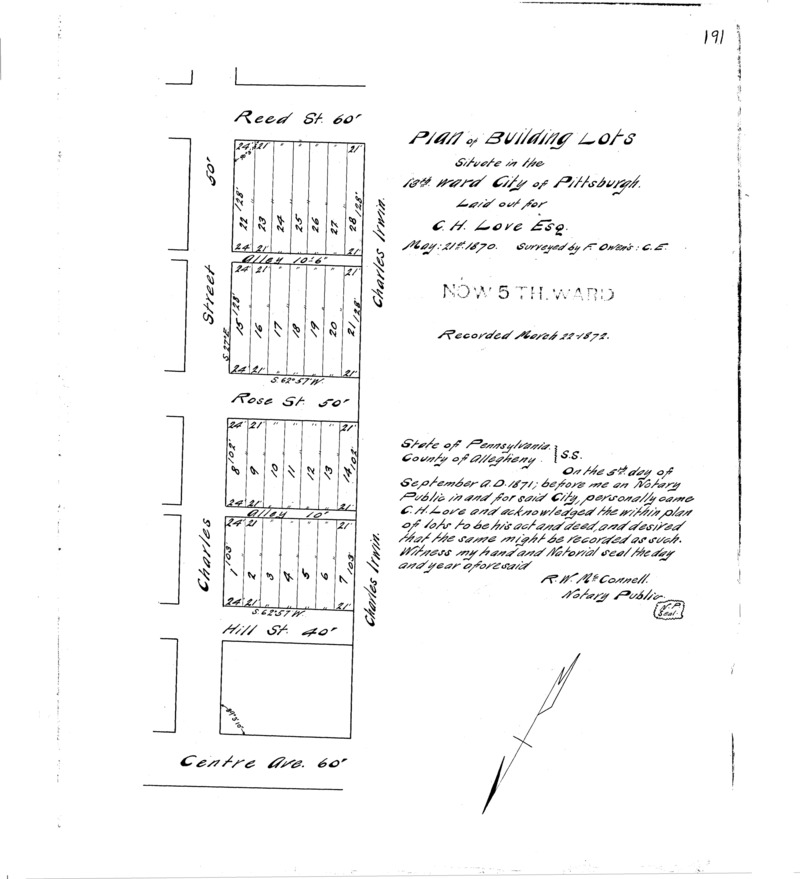 191
Reed St. 60'
24' 21' " " " " 21'
22 128' 23 24 25 26 27 28 128'
24' 21' 21'
Alley 10'6"
24' 21' " " " " 21'
15 128' 16 17 18 19 20 21 128'
24' 21' 21'
S. 27° E
S. 62° 57' W.
Rose St. 50'
24' 21' " " " " 21'
8 102' 9 10 11 12 13 14 102'
24' 21' 21'
Alley 10'
24' 21' 21'
1 103' 2 3 4 5 6 7 103'
24' 21' " " " " 21'
S. 62° 57' W.
Hill St. 40'
Centre Ave. 60'
Charles Street 50'
Charles Irwin.
Charles Irwin.
Plan of Building Lots
Situate in the
13th. ward City of Pittsburgh.
Laid out for
C. H. Love Esq.
May: 21st. 1870. Surveyed by F. Owens: C. E.
NOW 5 TH. WARD
Recorded March 22-1872.
State of Pennsylvania.
County of Allegheny } S.S.
On the 5th day of
September A.D. 1871; before me an Notary
Public in and for said City, personally came
C. H. Love and acknowledged the within plan
of lots to be his act and deed, and desired
that the same might be recorded as such.
Witness my hand and Notorial seal the day
and year aforesaid
R. W. McConnell.
Notary Public.
N. P.
Seal.
N